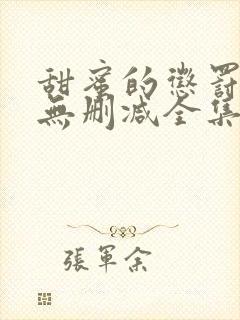 甜蜜的懲罰
無刪減全集
張軍余